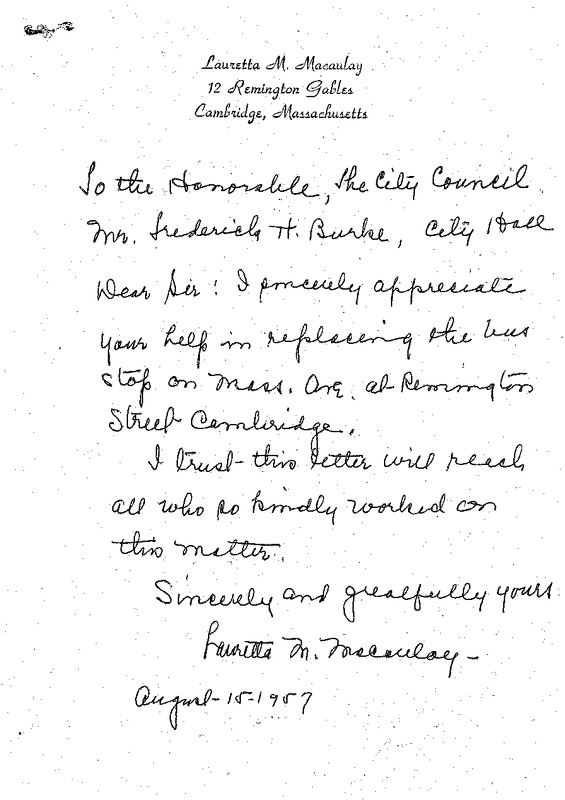 Lauretta M. Macaulay
12 Remington Gables
Cambridge, Massachusetts
To the Honorable, The City Council
Mr. Frederick H. Burke, City Hall
Dear Sir: I sincerely appreciate
your help in replacing the bus
stop on Mass. Ave. at Remington
Street Cambridge.
I trust this letter will reach
all who so kindly worked on
this matter.
Sincerely and greatfully yours
Lauretta M. Macaulay -
August 15-1957